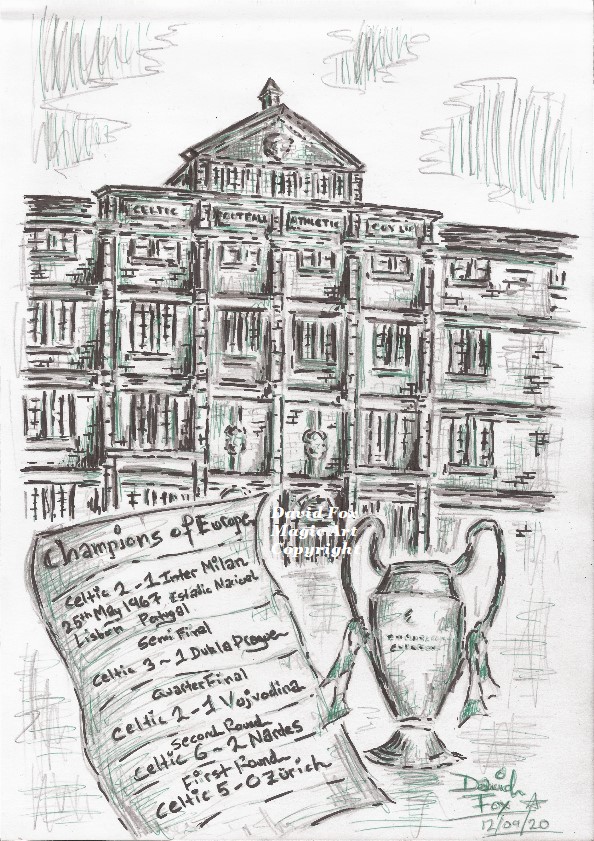 CELTIC FOOTBALL ATHLETIC COY LD
David Fox
MagicArt
Copyright
Champions of Europe
Celtic 2-1 Inter Milan
25th May 1967 Estadio Nacional
Lisbon Portugal
Semi Final
Celtic 3-1 Dukla Prague
Quarter Final
Celtic 2-1 Vojvodina
Second Round
Celtic 6-2 Nantes
First Round
Celtic 5-0 Zürich
David
Fox
12/09/20